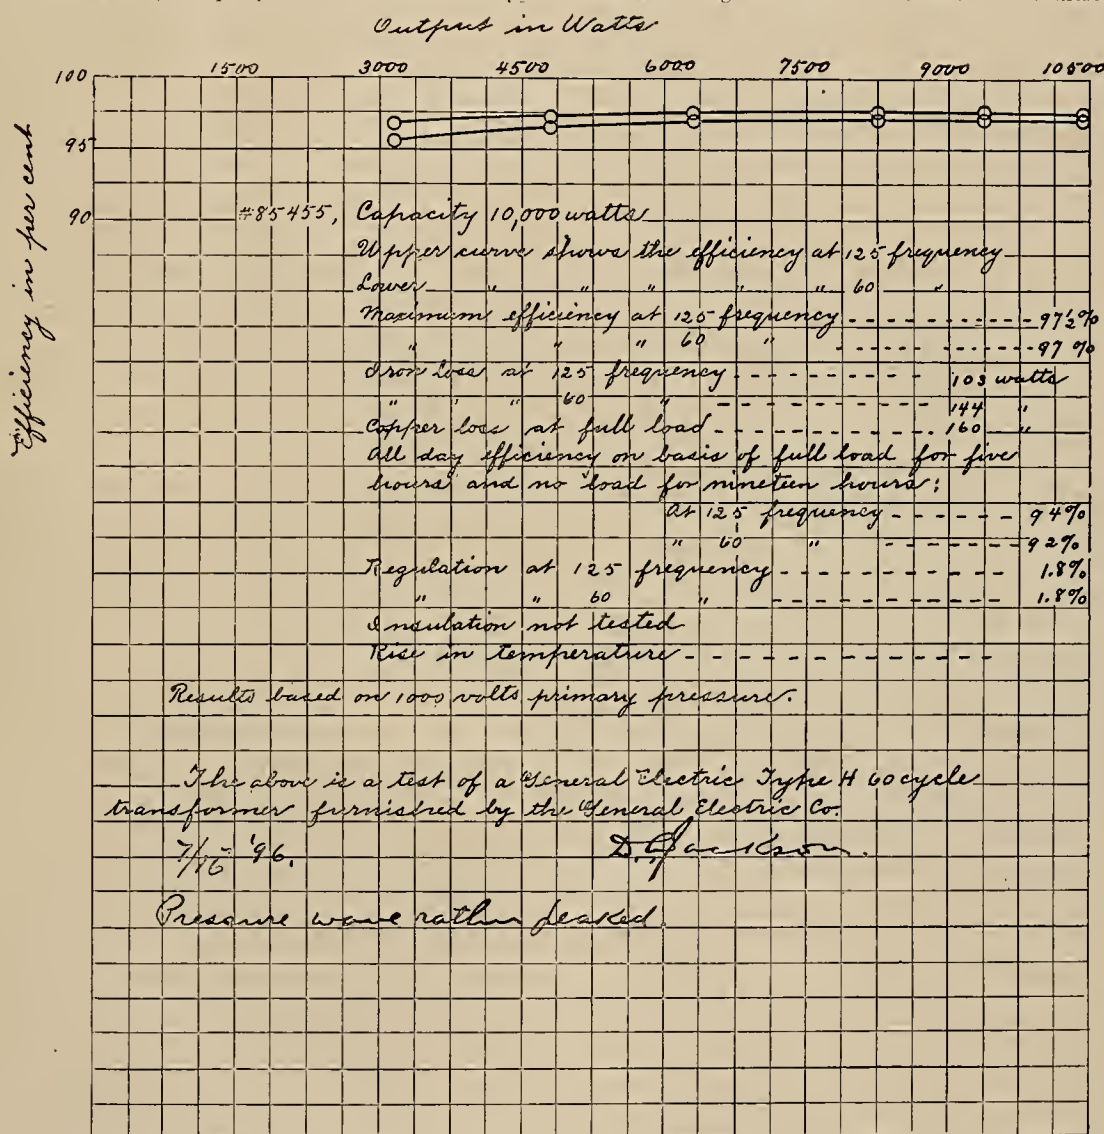 Output in Watts
1500 3000 4500 6000 7500 9000 10500
100
95
90
Efficiency in per cent
#85455, Capacity 10,000 watts
Upper curve shows the efficiency at 125 frequency
Lower " " " " " 60 "
Maximum efficiency at 125 frequency - - - - - - - - 97½%
" " " 60 " - - - - - - - - - 97%
Iron loss at 125 frequency - - - - - - - - 103 watts
" " " 60 " - - - - - - - - 144 "
Copper loss at full load - - - - - - - - - 160 "
All day efficiency on basis of full load for five
hours and no load for nineteen hours:
At 125 frequency - - - - - - 94%
" 60 " - - - - - - - - 92%
Regulation at 125 frequency - - - - - - - - - 1.8%
" " 60 " - - - - - - - - - 1.8%
Insulation not tested
Rise in temperature - - - - - - - - - - - -
Results based on 1000 volts primary pressure.
The above is a test of a General Electric Type H 60 cycle
transformer furnished by the General Electric Co.
7/15 '96. D.C. Jackson.
Pressure wave rather peaked